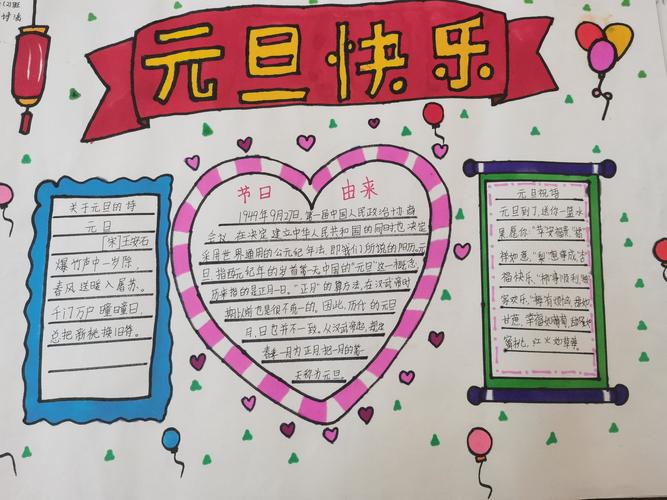 (2)班
诗涵
元旦快乐
关于元旦的诗
元日
[宋]王安石
爆竹声中一岁除,
春风送暖入屠苏。
千门万户曈曈日,
总把新桃换旧符。
节日 由来
1949年9月27日,第一届中国人民政治协商
会议,在决定建立中华人民共和国的同时也决定
采用世界通用的公元纪年法,即我们所说的阳历。元
旦指格元纪年的岁首第一天中国的“元旦”这一概念,
历来指的是正月一日。“正月”的算方法,在汉武帝时
期以前也是很不统一的。因此,历代的元旦
月,日也并不一致。从汉武帝起,规定
春一月为正月,把一月的第一
天称为元旦。
元旦祝语
元旦到了,送你一篮水
果愿你“苹安福寿”“猫
祥如意,“梨想早成”吉
福快乐,“柳事顺利”“
客欢乐,“梅有烦恼
甘蔗,幸福如葡萄,
蜜桃,红火如草莓。